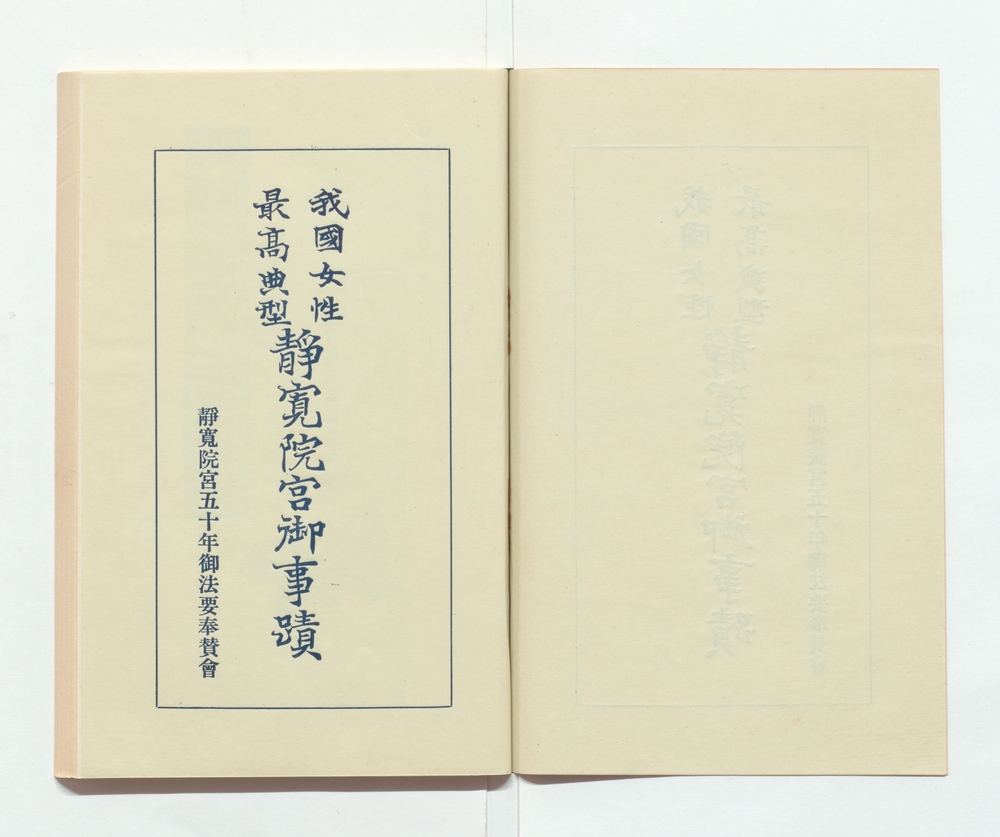 我國女性
最高典型
靜寛院宮御事蹟
靜寬院宮五十年御法要奉賛會